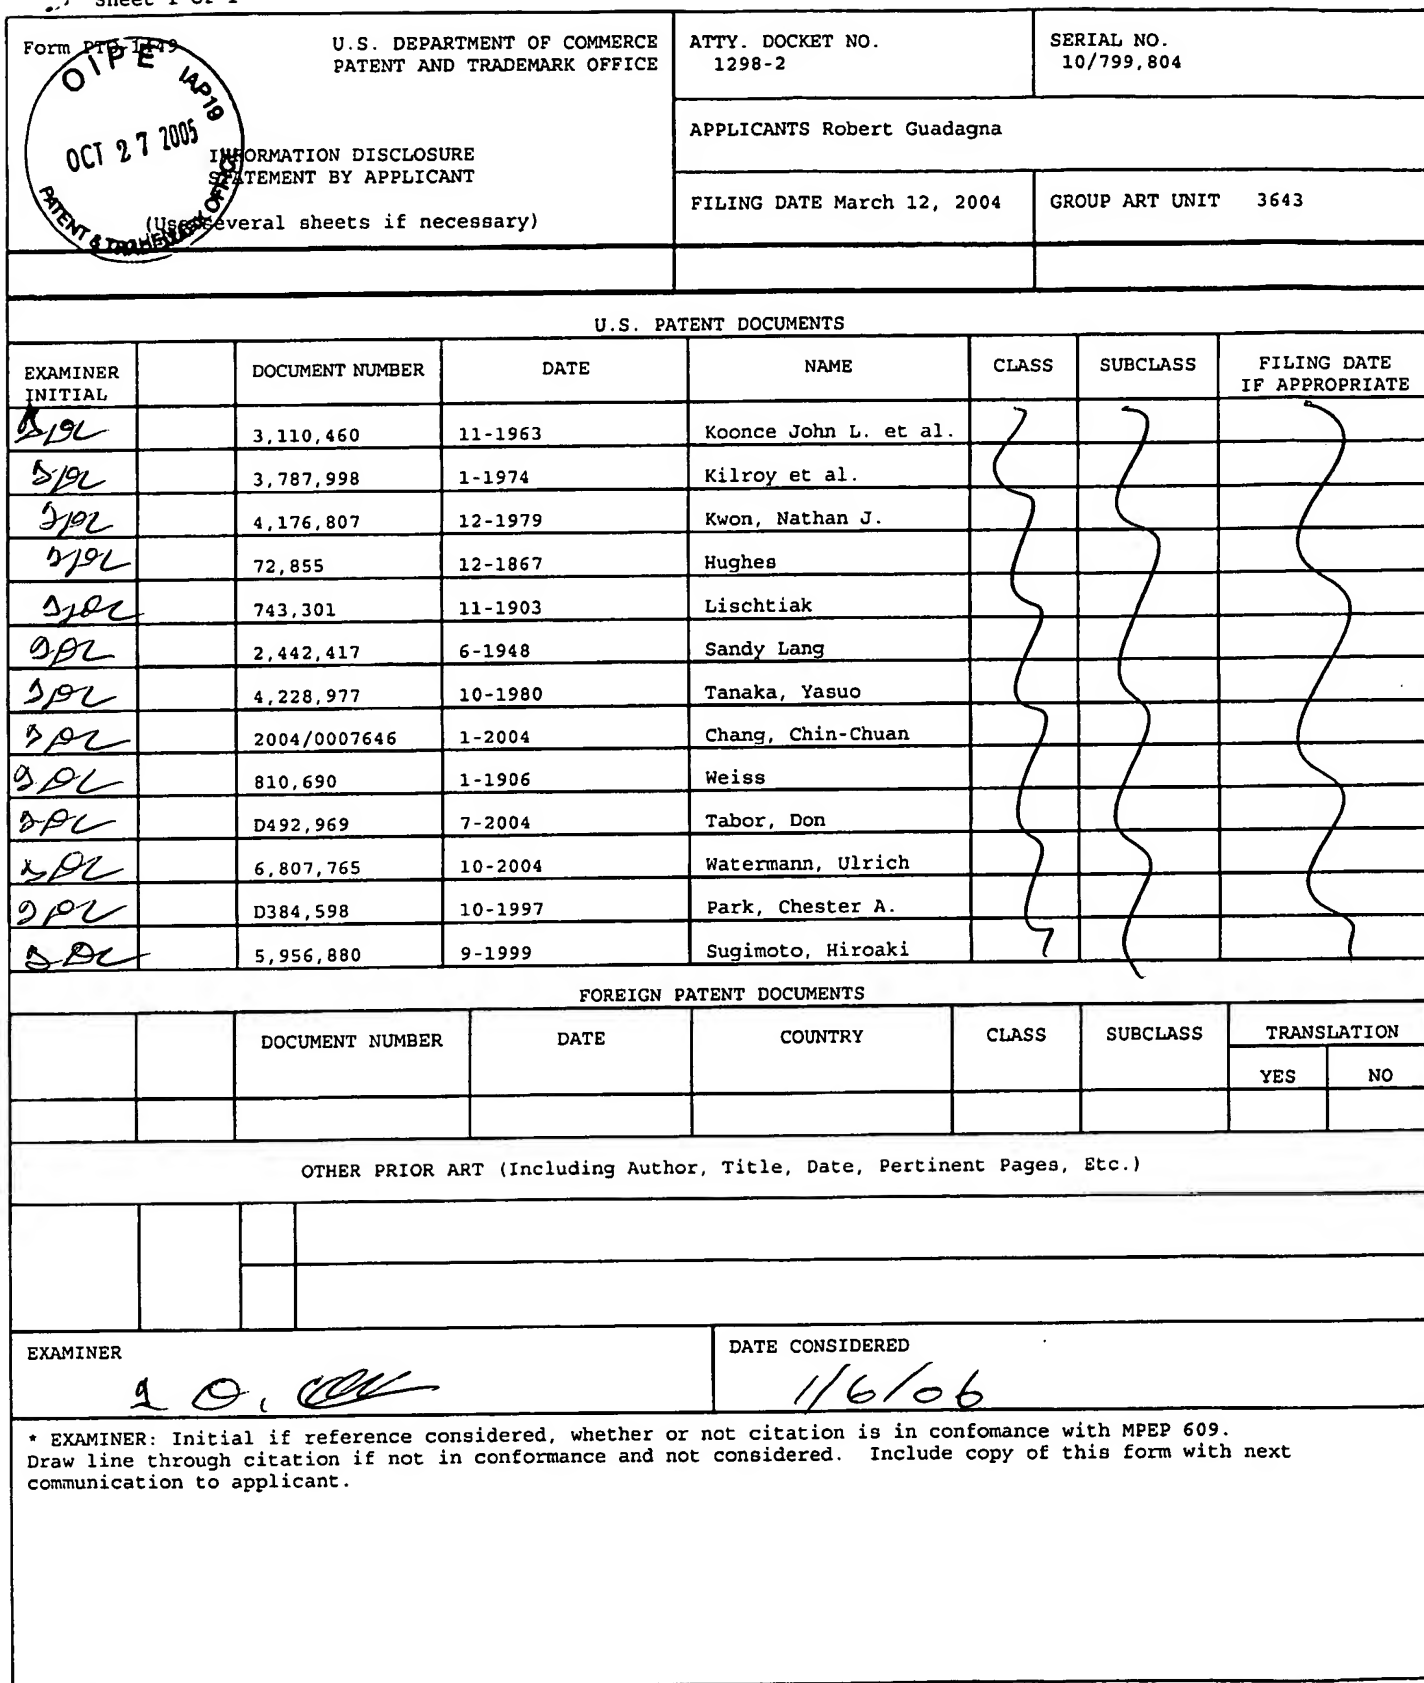 Sheet 1 of 1
Form PTO-1449
U.S. DEPARTMENT OF COMMERCE
PATENT AND TRADEMARK OFFICE
ATTY. DOCKET NO.
1298-2
SERIAL NO.
10/799,804
OIPE IAP19
OCT 27 2005
PATENT & TRADEMARK OFFICE
INFORMATION DISCLOSURE
STATEMENT BY APPLICANT
(Use several sheets if necessary)
APPLICANTS Robert Guadagna
FILING DATE March 12, 2004
GROUP ART UNIT 3643
U.S. PATENT DOCUMENTS
EXAMINER
INITIAL
DOCUMENT NUMBER
DATE
NAME
CLASS
SUBCLASS
FILING DATE
IF APPROPRIATE
3,110,460 11-1963 Koonce John L. et al.
3,787,998 1-1974 Kilroy et al.
4,176,807 12-1979 Kwon, Nathan J.
72,855 12-1867 Hughes
743,301 11-1903 Lischtiak
2,442,417 6-1948 Sandy Lang
4,228,977 10-1980 Tanaka, Yasuo
2004/0007646 1-2004 Chang, Chin-Chuan
810,690 1-1906 Weiss
D492,969 7-2004 Tabor, Don
6,807,765 10-2004 Watermann, Ulrich
D384,598 10-1997 Park, Chester A.
5,956,880 9-1999 Sugimoto, Hiroaki
FOREIGN PATENT DOCUMENTS
DOCUMENT NUMBER
DATE
COUNTRY
CLASS
SUBCLASS
TRANSLATION
YES
NO
OTHER PRIOR ART (Including Author, Title, Date, Pertinent Pages, Etc.)
EXAMINER
DATE CONSIDERED
1/6/06
* EXAMINER: Initial if reference considered, whether or not citation is in confomance with MPEP 609.
Draw line through citation if not in conformance and not considered. Include copy of this form with next
communication to applicant.